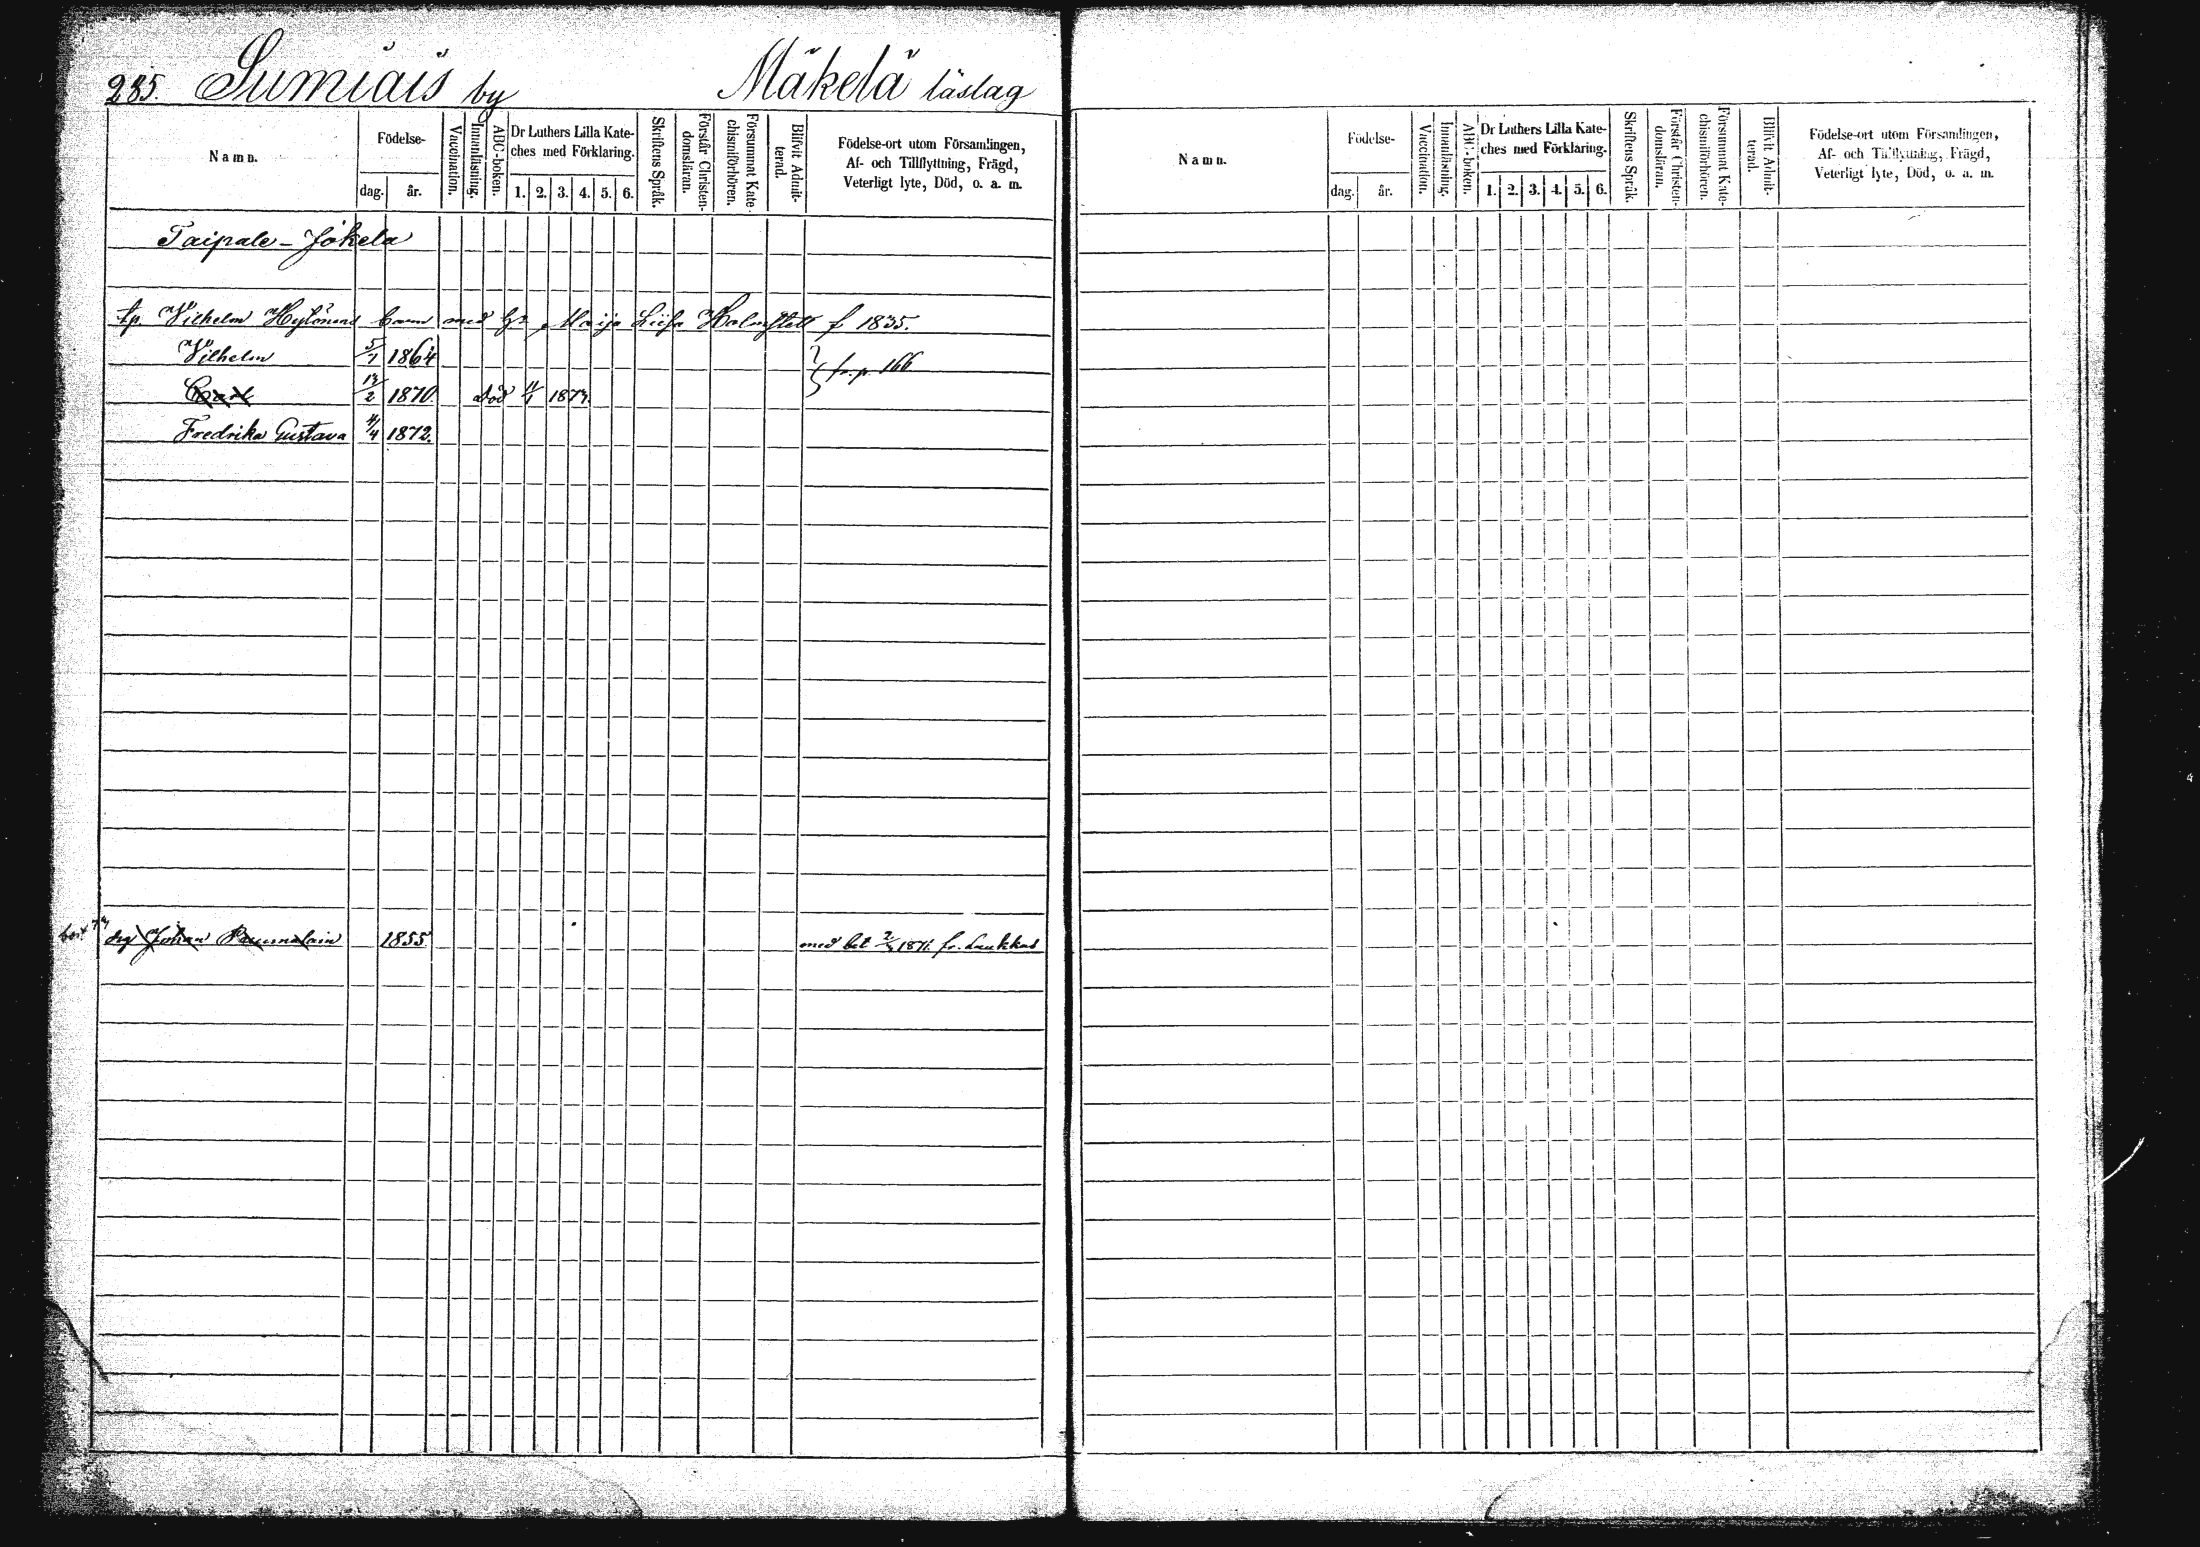 285. Sumiais by Mäkelä läslag
Namn.
Födelse-
dag. år.
Vaccination.
Innanläsning.
ABC-boken.
Dr Luthers Lilla Kate-
ches med Förklaring.
1. 2. 3. 4. 5. 6.
Skriftens Språk.
Förstår Christen-
domsläran.
Försummat Kate-
chismiförhören.
Blifvit Admit-
terad.
Födelse-ort utom Församlingen,
Af- och Tillflyttning, Frägd,
Veterligt lyte, Död, o. a. m.
Taipale-Jokela
Vilhelm Hytönens barn med Maija Liisa f 1835.
Vilhelm 5/1 1864
fr. p. 166
Carl 1870. död 1873.
Fredrika Gustava 4/4 1872.
drg Johan 1855 med bet 1871. fr. Laukkas
Namn.
Födelse-
dag. år.
Vaccination.
Innanläsning.
ABC-boken.
Dr Luthers Lilla Kate-
ches med Förklaring.
1. 2. 3. 4. 5. 6.
Skriftens Språk.
Förstår Christen-
domsläran.
Försummat Kate-
chismiförhören.
Blifvit Admit-
terad.
Födelse-ort utom Församlingen,
Af- och Tillflyttning, Frägd,
Veterligt lyte, Död, o. a. m.